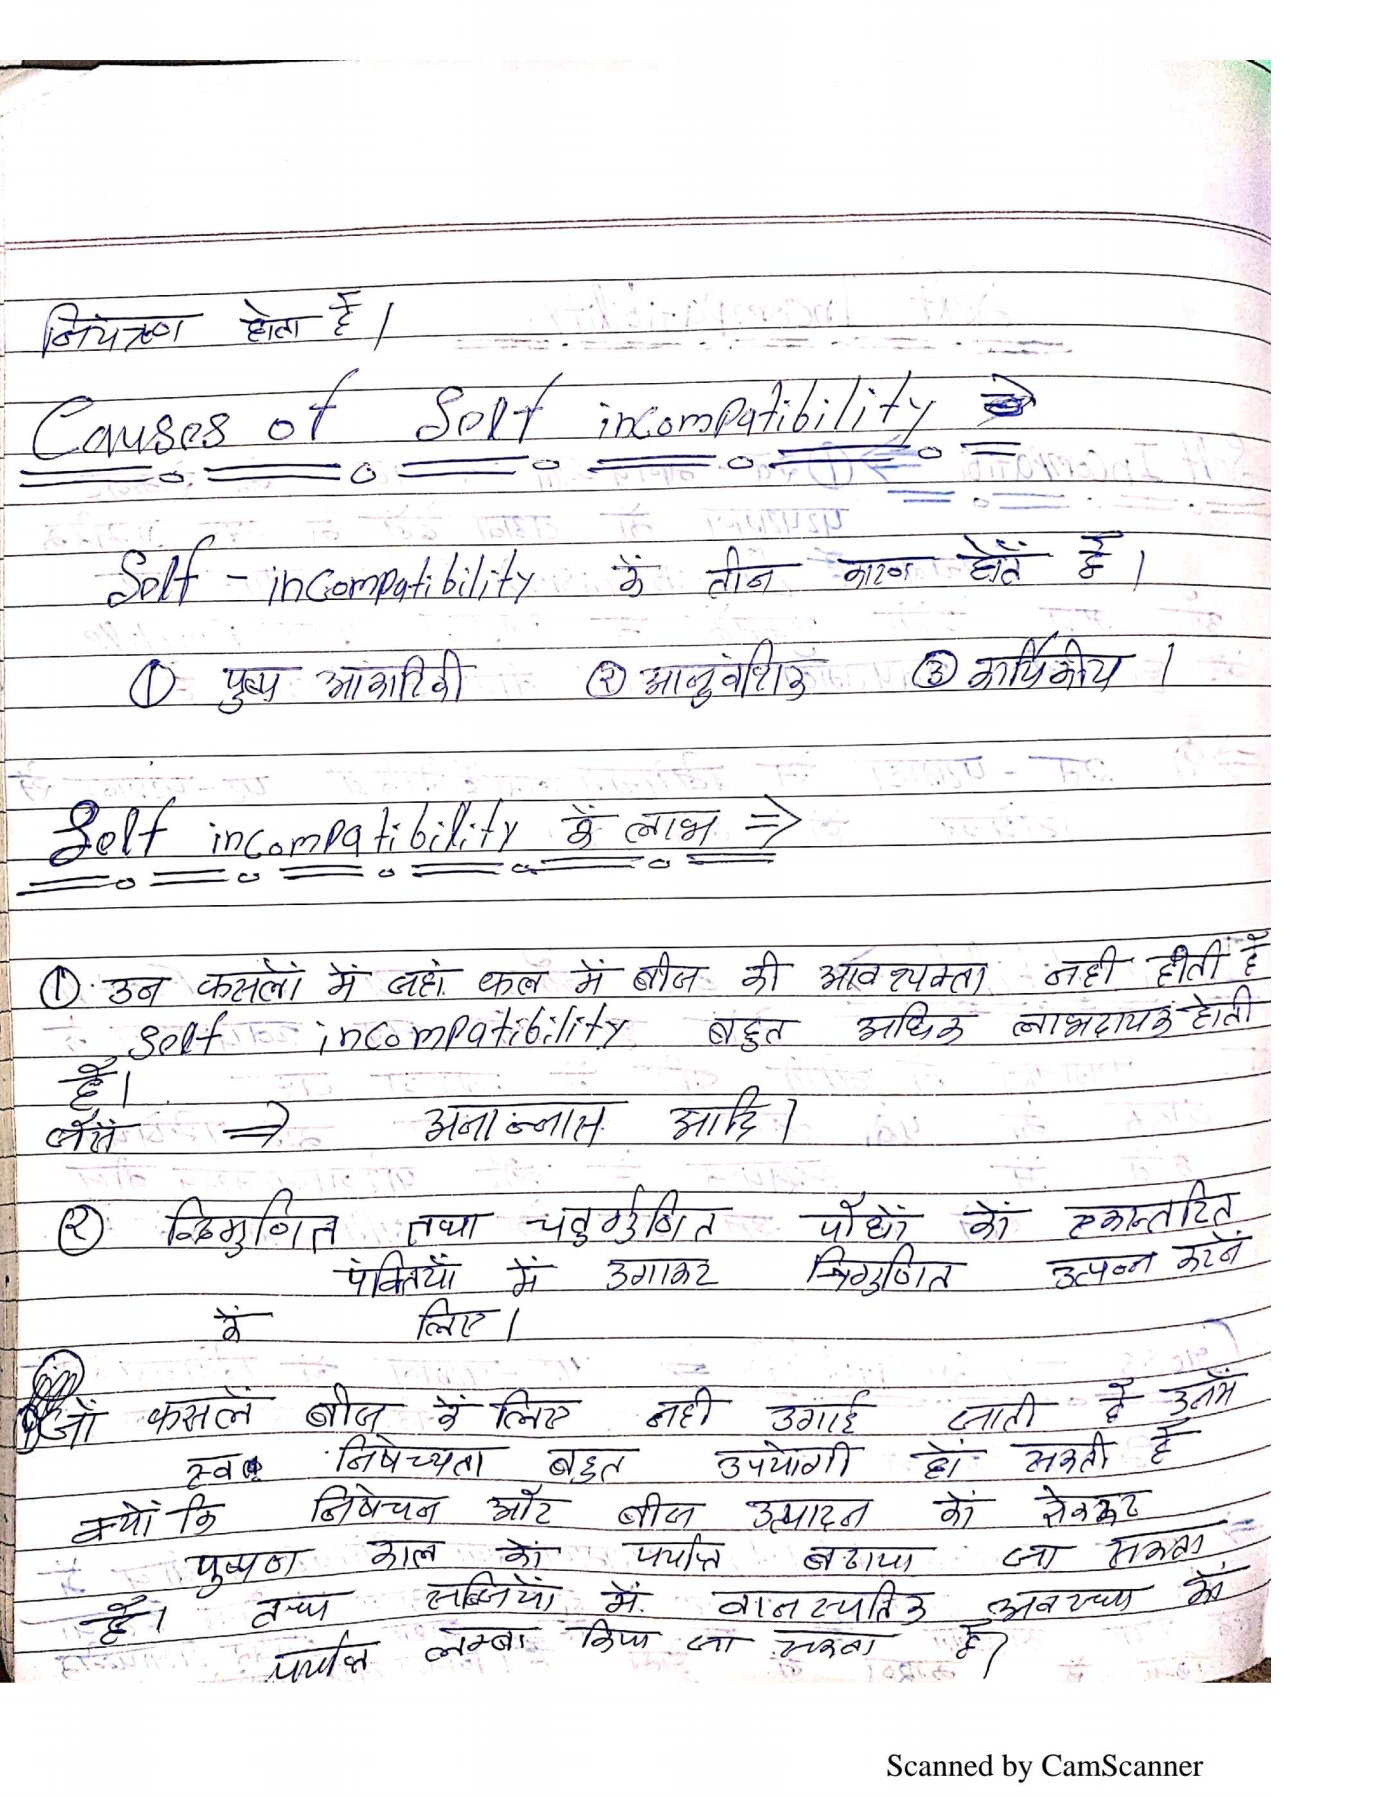 नियंत्रण होता है।
Causes of Self incompatibility ⇒
Self - incompatibility के तीन कारण होते है।
① पुष्प आकारिकी ② आनुवंशिक ③ कार्यिकीय।
Self incompatibility के लाभ ⇒
① उन फसलों में जहां फल में बीज की आवश्यक्ता नही होती है
Self incompatibility बहुत अधिक लाभदायक होती
है।
जैसे ⇒ अनान्नास आदि।
② द्विगुणित तथा चतुर्गुणित पौधों को एकान्तरित
पंक्तियों में उगाकर त्रिगुणित उत्पन्न करने
के लिए।
जो फसलें बीज के लिए नही उगाई जाती है उनमें
स्व निषेच्यता बहुत उपयोगी हो सकती है
क्यों कि निषेचन और बीज उत्पादन को रोककर
पुष्पण काल को पर्याप्त बढाया जा सकता
है। तथा सब्जियों में वानस्पतिक अवस्था को
पर्याप्त लम्बा किया जा सकता है।
Scanned by CamScanner